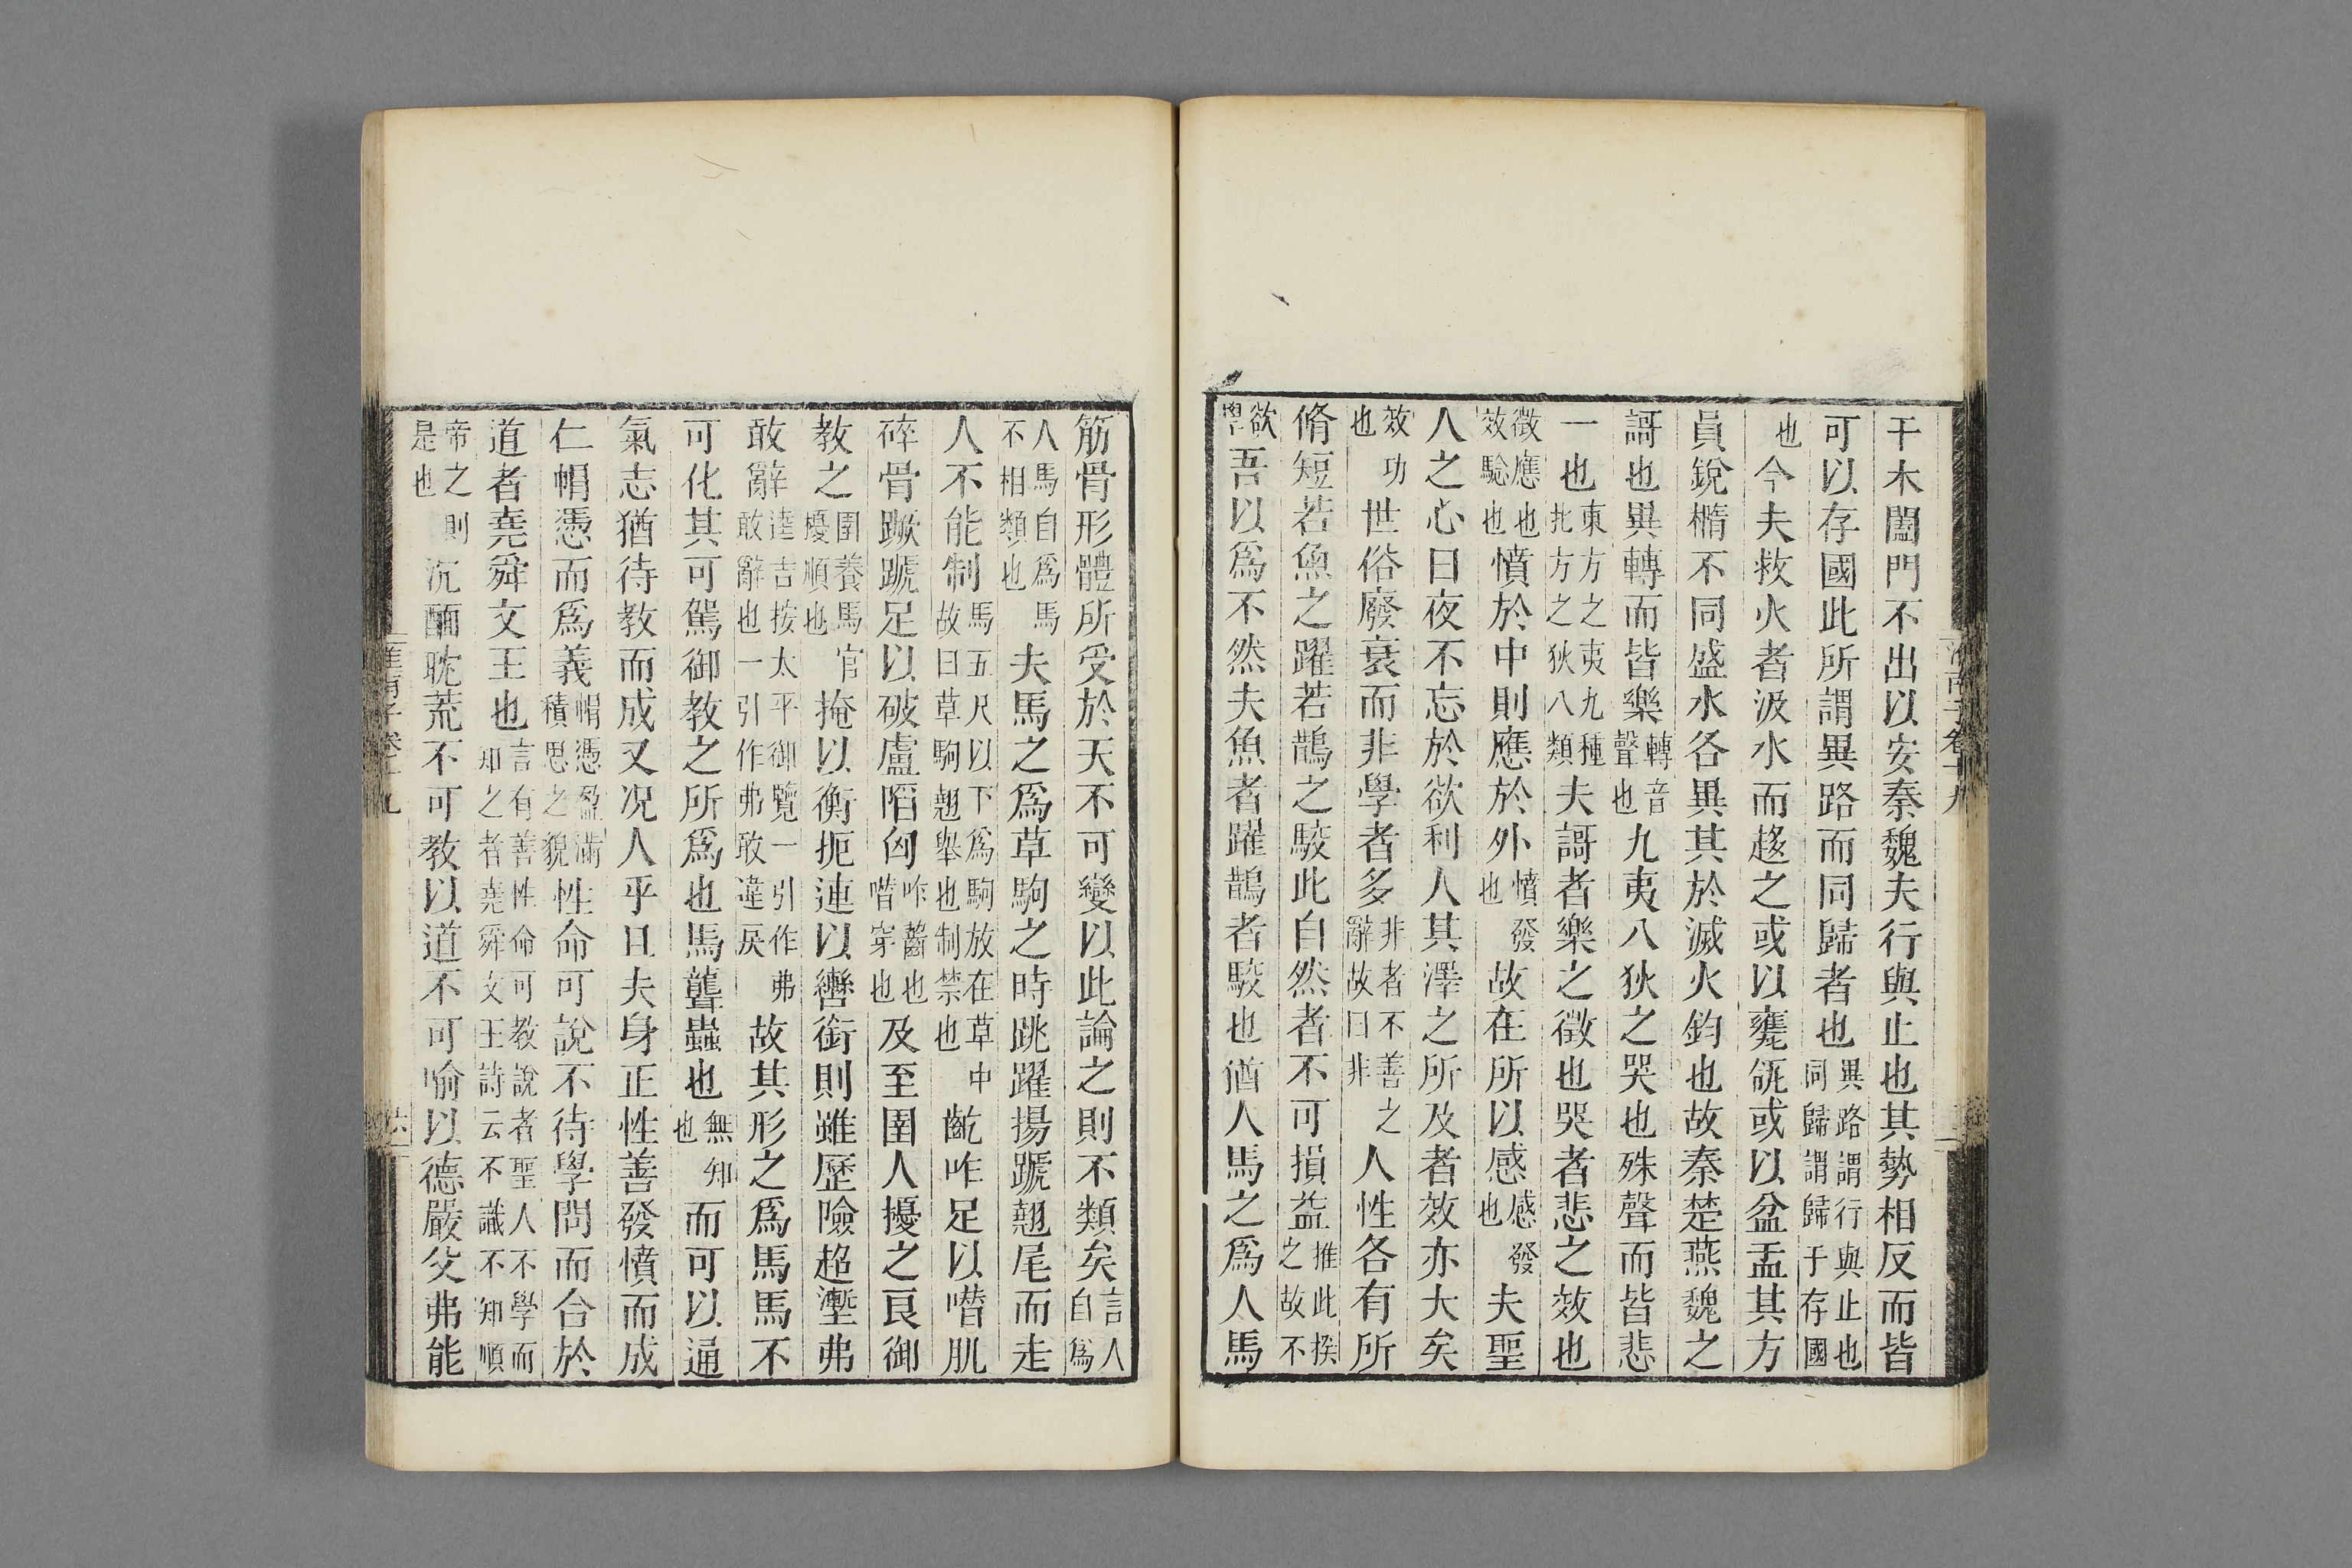 干木闔門不出以安秦魏夫行與止也其勢相反而皆
可以存國此所謂異路而同歸者也異路謂行與止也同歸謂歸于存國
也今夫救火者汲水而趍之或以甕瓴或以盆盂其方
員銳橢不同盛水各異其於滅火鈞也故秦楚燕魏之
謌也異轉而皆樂轉音聲也九夷八狄之哭也殊聲而皆悲
一也東方之夷九種北方之狄八類夫謌者樂之徵也哭者悲之效也
徵應也效驗也憤於中則應於外憤發也故在所以感感發也夫聖
人之心日夜不忘於欲利人其澤之所及者效亦大矣
效功也世俗廢衰而非學者多非者不善之辭故曰非人性各有所
脩短若魚之躍若鵲之駮此自然者不可損益推此揆之故不
欲學吾以爲不然夫魚者躍鵲者駮也猶人馬之爲人馬
淮南子卷十九
筋骨形體所受於天不可變以此論之則不類矣言人自爲
人馬自爲馬不相類也夫馬之爲草駒之時跳躍揚蹏翹尾而走
人不能制馬五尺以下爲駒放在草中故曰草駒翹舉也制禁也齕咋足以噆肌
碎骨蹶蹏足以破盧陷匈咋齧也噆穿也及至圉人擾之良御
教之圉養馬官擾順也掩以衡扼連以轡銜則雖歷險超壍弗
敢辭逵吉按太平御覽一引作弗敢辭也一引作弗敢違戾故其形之爲馬馬不
可化其可駕御教之所爲也馬聾蟲也無知也而可以通
氣志猶待教而成又況人乎且夫身正性善發憤而成
仁帽憑而爲義帽憑盈滿積思之貌性命可說不待學問而合於
道者堯舜文王也言有善性命可教說者聖人不學而知之者堯舜文王詩云不識不知順
帝之則是也沉酗眈荒不可教以道不可喻以德嚴父弗能
淮南子卷十九